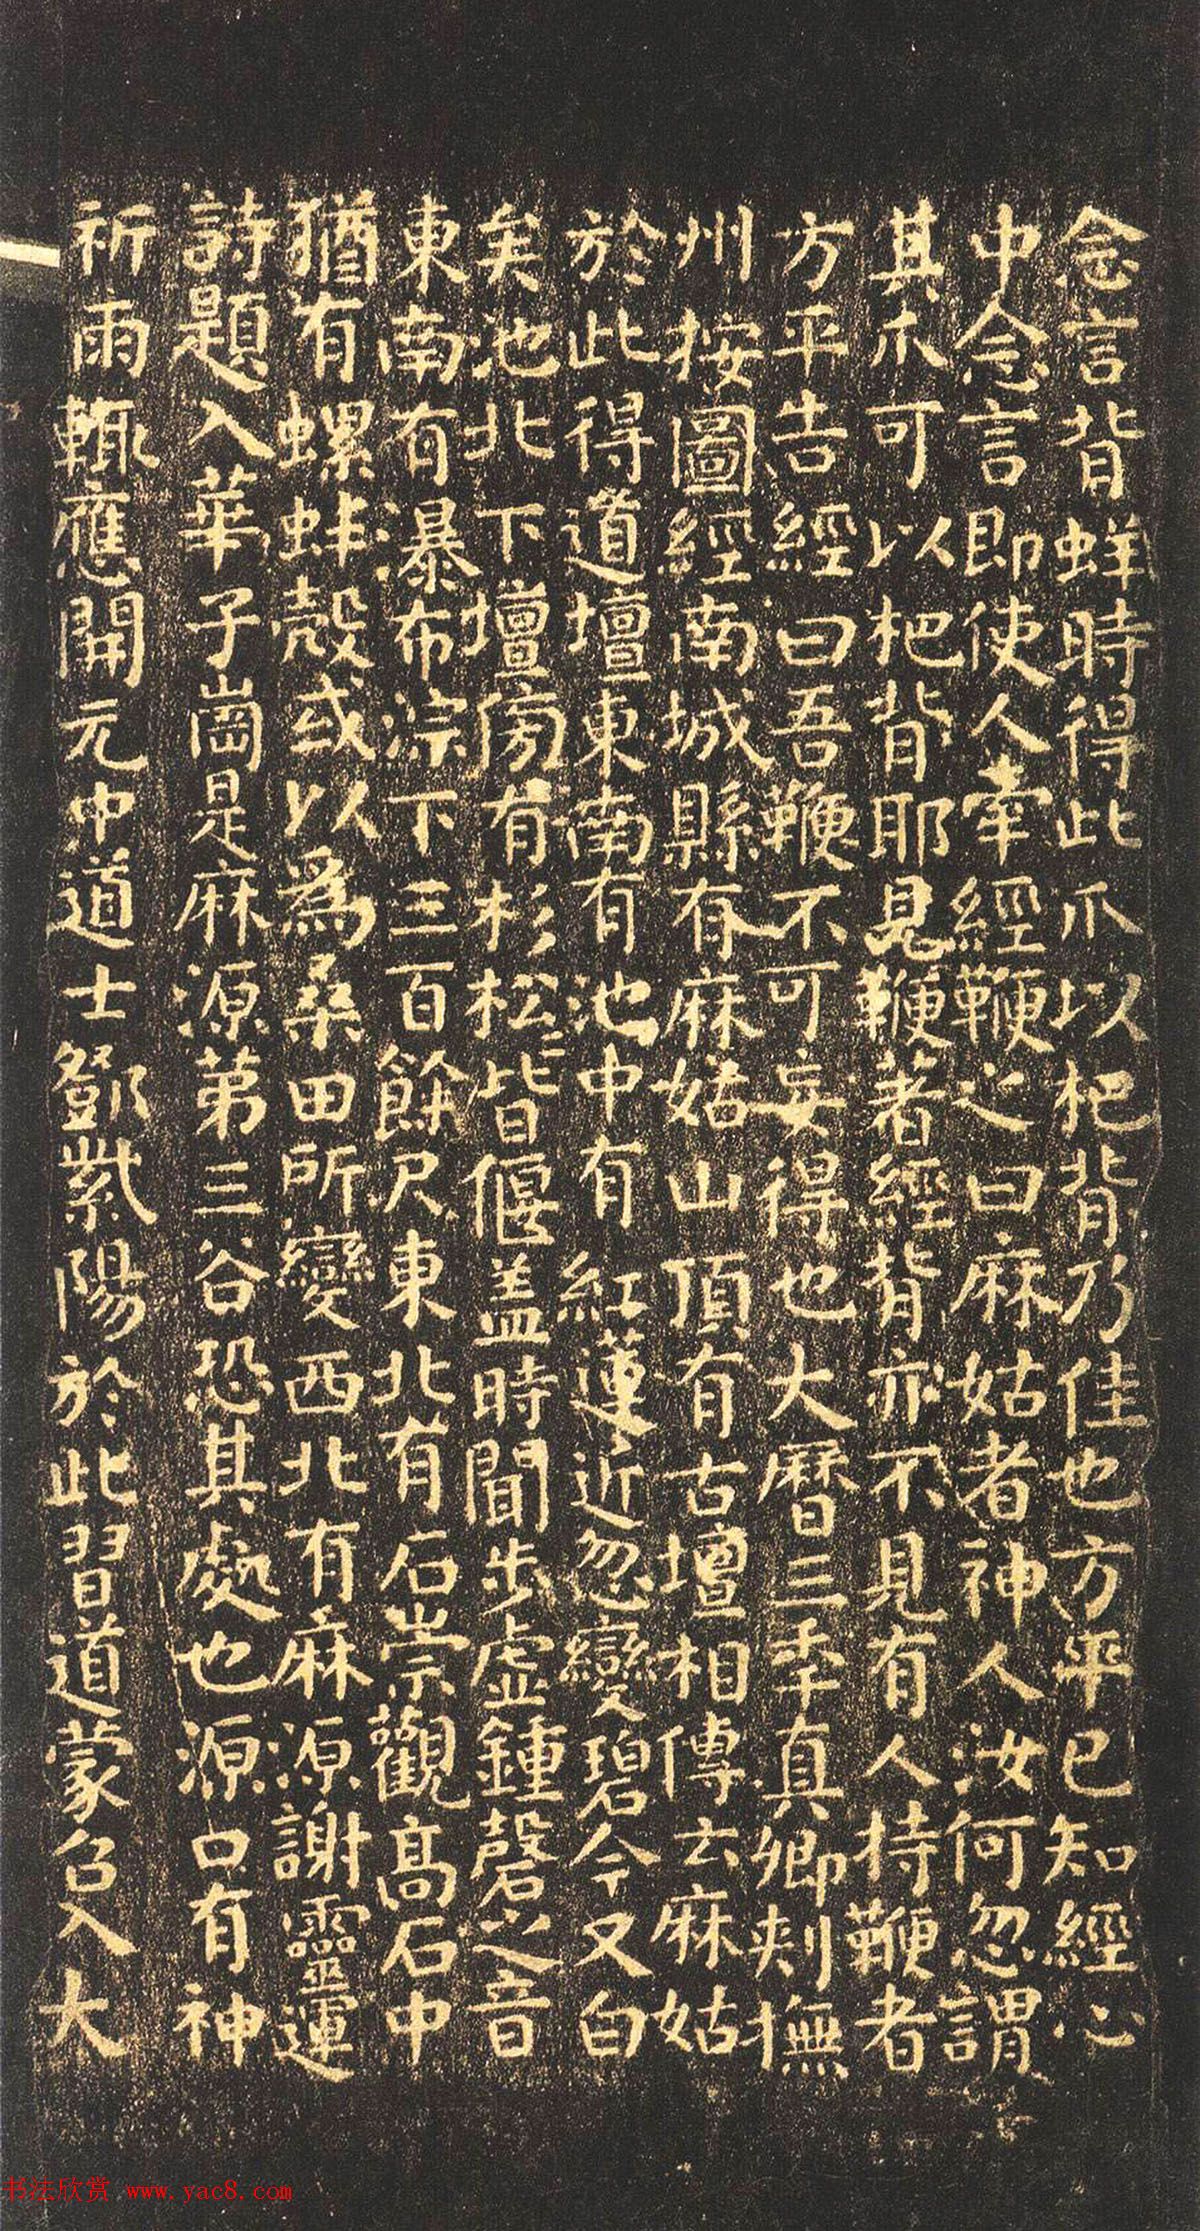 念言背蛘時得此爪以杷背乃佳也方平已知經心
中念言即使人牽經鞭之曰麻姑者神人汝何忽謂
其爪可以杷背耶見鞭著經背亦不見有人持鞭者
方平告經曰吾鞭不可妄得也大曆三年真卿刺撫
州按圖經南城縣有麻姑山頂有古壇相傳云麻姑
於此得道壇東南有池中有紅蓮近忽變碧今又白
矣池北下壇傍有杉松松皆偃盖時聞步虛鍾磬之音
東南有瀑布淙下三百餘尺東北有石崇觀高石中
猶有螺蚌殼或以為桑田所變西北有麻源謝靈運
詩題入華子崗是麻源第三谷恐其處也源口有神
祈雨輒應開元中道士鄧紫陽於此習道蒙召入大
书法欣赏 www.yac8.com